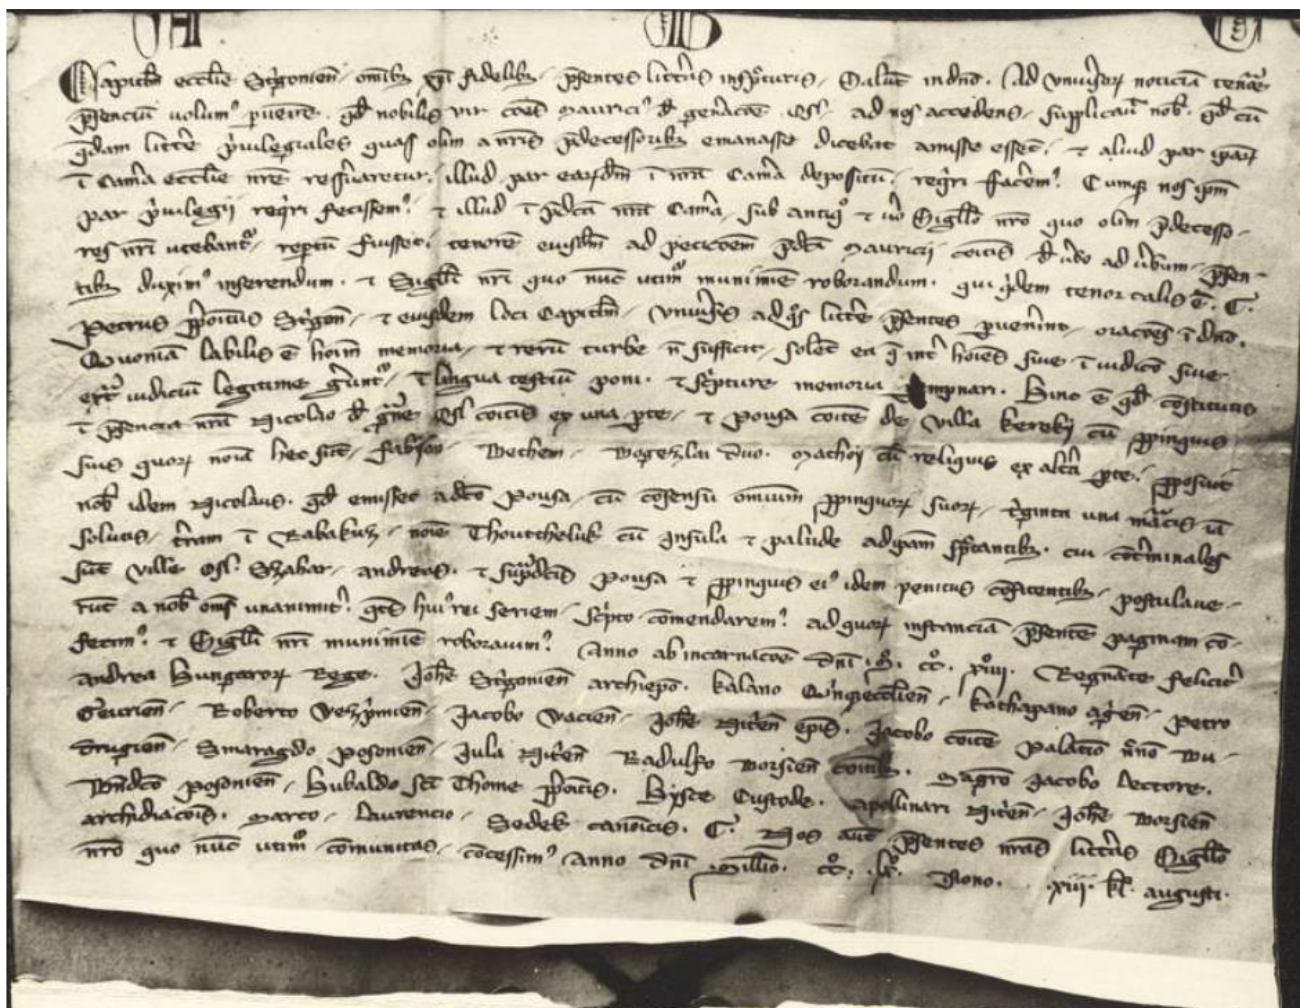 A B C
Capitlm ecclie Strigonien. omibz xpi fidelibz. p̃sentes litt̃as insp̃cturis. Salut̃ in dño. Ad vniũsoꝝ noticiã tenõe
p̃senciũ uolum⁹ p̱uenire. qđ nobilis vir com̃es Maurici⁹ đ gen̑acõe Osl. ad nos accedens. supplicauit nob̃. qđ cũ
q̃dam litt̃e p̑uilegiales quas olim a nr̃is p̃decessoribz emanasse dicebat amisse essẽt. ⁊ aliud par ip̃aꝝ
ĩ Cam̑a ecclie nr̃e res̑uaretur. illud par earuđm ĩ nr̃a Cam̑a depositũ. req̑ri fac̑em⁹. Cumqz nos ip̃m
par p̑uilegij req̑ri fecissem⁹. ⁊ illud ĩ p̃dc̃a nr̃a Cam̑a. sub antiq̊ ⁊ ũo Sigillo nr̃o quo olim p̃decesso-
res nr̃i utebant̃. rep̱tũ fuisset. tenorẽ eiusdẽm ad peticiõem p̃dc̃i Mauricij com̃itis đ ũbo ad ũbum. p̃sen-
tibz duxim⁹ inserendum. ⁊ Sigilli nr̃i quo nũc utim̃ munimĩe roborandum. qui q̑dem tenor talis ẽ. C.
Petrus p̃positus Strigoñ. ⁊ eiusdem loci Capitlm. Vniũsis ad q̊s litt̃e p̃sentes p̱uen̑int. oraciões ĩ dño.
Quoniã labilis ẽ hoĩm memoria. ⁊ rerũ turbe ñ sufficit. solẽt ea q̃ int̑ hoĩes siue ĩ iudicio siue
ext̃ iudiciũ legitime g̑unt̃. ĩ lingua testiũ poni. ⁊ sc̑pture memoria ... Hinc ẽ qđ c̃stitutis
ĩ p̃sencia nr̃a Nicolao đ gñe Osl com̃itis ex una p̱te. ⁊ Pousa com̃ite de villa Kerekij cũ ꝓpinquis
suis quoꝝ noĩa hec sũt. Fabian. Bethem. Bogezlai duo. Mathey cũ reliquis ex alt̑a p̱te. ꝓposuit
nob̃ idem Nicolaus. qđ emisset a dc̃o Pousa. cũ c̃sensu omnium ꝓpinquoꝝ suoꝝ. t̑ginta una m̃cis iã
solutis. t̑ram ĩ Rabakuz. noĩe Thoutheluk cũ insula ⁊ palude ad ip̃am sp̃tantibz. cui c̃t̑minales
sũt ville Osl. Szabar. Andreas. ⁊ sup̃dc̃is Pousa ⁊ ꝓpinquis ei⁹ idem penitus c̃fitentibz. postulaue-
rũt a nob̃ om̃s unanimit̑. qt̃s hui⁹ rei seriem. sc̑pto c̃mendarem⁹. ad quoꝝ instanciã p̃sentẽ paginam c̃-
fecim⁹. ⁊ Sigilli nr̃i munimĩe roborauim⁹. Anno ab incarnaciõe dñi .M̊. cc̊. xiiij. Regnãte felicit̑
Andrea Hungaroꝝ Rege. Joh̃e Strigonien̄ archiep̃o. Kalano Quinqecclien̄. Kathapano Agȓen̄. Petro
Geurien̄. Roberto Vezp̑mien̄. Jacobo Vacien̄. Joh̃e Nit̑en̄ ep̃is. Jacobo com̃ite Palatio ... Bu-
drugien̄. Smaragdo Posonien̄. Jula Nit̑en̄ Radulfo Borsien̄ com̃itibz. Mag̑ro Jacobo lectore.
Bñdc̃o Posonien̄. Hubaldo sc̃i Thome p̃positis. Byste Custode. Apollinari Nit̑en̄. Joh̃e Borsien̄
archidiaconis. Marco. Laurencio. Sedek canonicis. C. Nos aũt p̃sentes nr̃as litt̃as Sigillo
nr̃o quo nũc utim̃ c̃munitas. c̃cessim⁹. Anno dñi Millio. cc̊. lx̊. Nono. .xiij. kl̃. augusti.